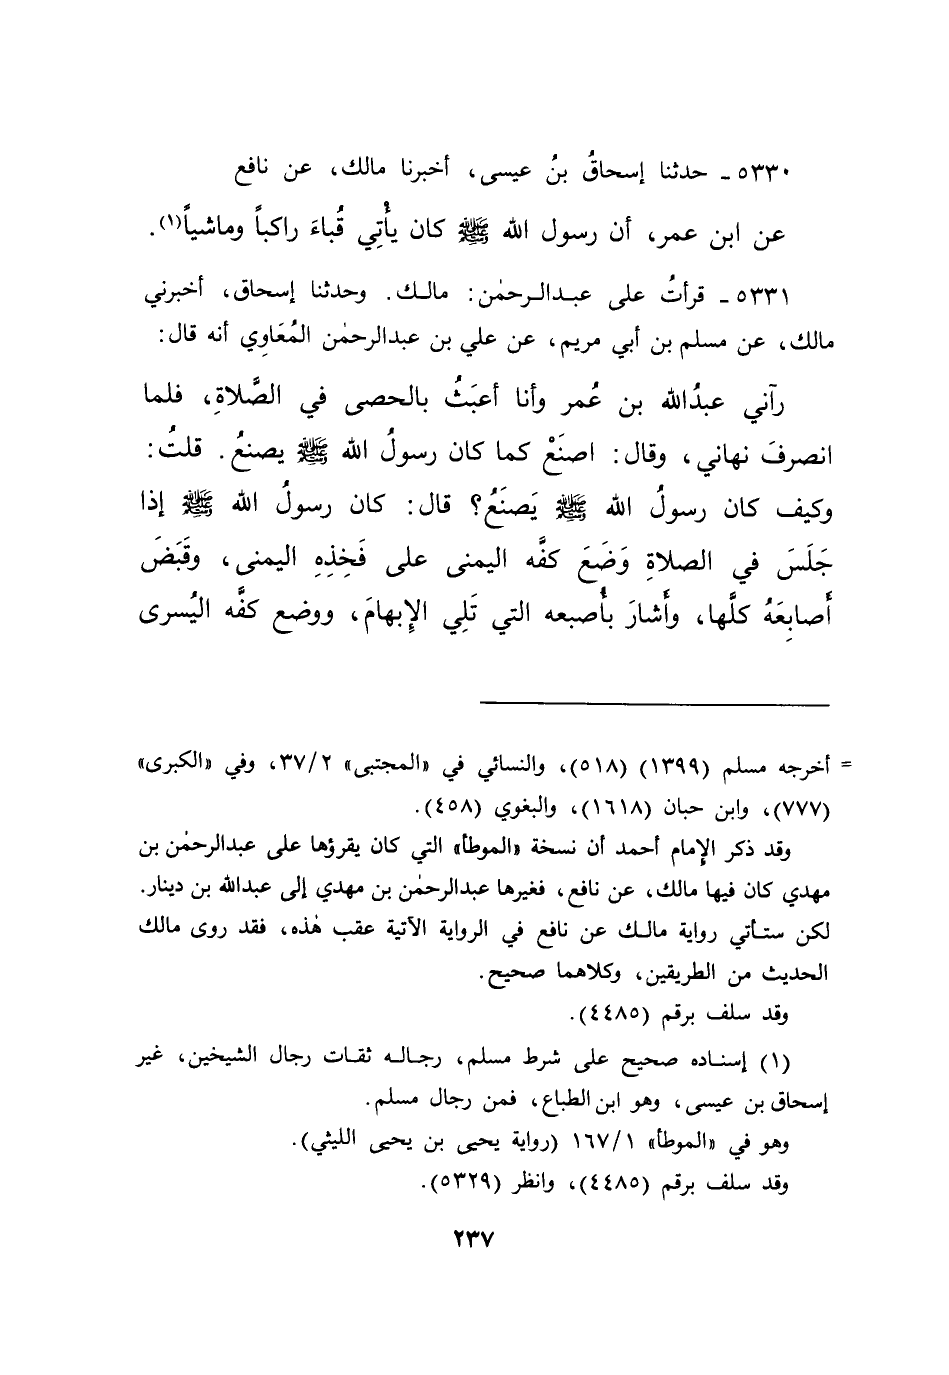 ٥٣٣٠ ـ حدثنا إسحاقُ بنُ عيسى، أخبرنا مالك، عن نافع
عن ابن عمر، أن رسول الله ﷺ كان يأْتِي قُباءَ راكباً وماشياً(١).
٥٣٣١ ـ قرأتُ على عبدالرحمٰن: مالك. وحدثنا إسحاق، أخبرني
مالك، عن مسلم بن أبي مريم، عن علي بن عبدالرحمٰن المُعَاوِي أنه قال:
رآني عبدُالله بن عُمر وأنا أعبَثُ بالحصى في الصَّلاةِ، فلما
انصرفَ نهاني، وقال: اصنَعْ كما كان رسولُ الله ﷺ يصنعُ. قلتُ:
وكيف كان رسولُ الله ﷺ يَصنَعُ؟ قال: كان رسولُ الله ﷺ إذا
جَلَسَ في الصلاةِ وَضَعَ كفَّه اليمنى على فَخِذِهِ اليمنى، وقَبَضَ
أَصابِعَهُ كلَّها، وأَشارَ بأُصبعه التي تَلِي الإِبهامَ، ووضع كفَّه اليُسرى
= أخرجه مسلم (١٣٩٩) (٥١٨)، والنسائي في «المجتبى» ٣٧/٢، وفي «الكبرى»
(٧٧٧)، وابن حبان (١٦١٨)، والبغوي (٤٥٨).
وقد ذكر الإِمام أحمد أن نسخة «الموطأ» التي كان يقرؤها على عبدالرحمٰن بن
مهدي كان فيها مالك، عن نافع، فغيرها عبدالرحمٰن بن مهدي إلى عبدالله بن دينار.
لكن ستأتي رواية مالك عن نافع في الرواية الآتية عقب هٰذه، فقد روى مالك
الحديث من الطريقين، وكلاهما صحيح.
وقد سلف برقم (٤٤٨٥).
(١) إسناده صحيح على شرط مسلم، رجاله ثقات رجال الشيخين، غير
إسحاق بن عيسى، وهو ابن الطباع، فمن رجال مسلم.
وهو في «الموطأ» ١٦٧/١ (رواية يحيى بن يحيى الليثي).
وقد سلف برقم (٤٤٨٥)، وانظر (٥٣٢٩).
٢٣٧